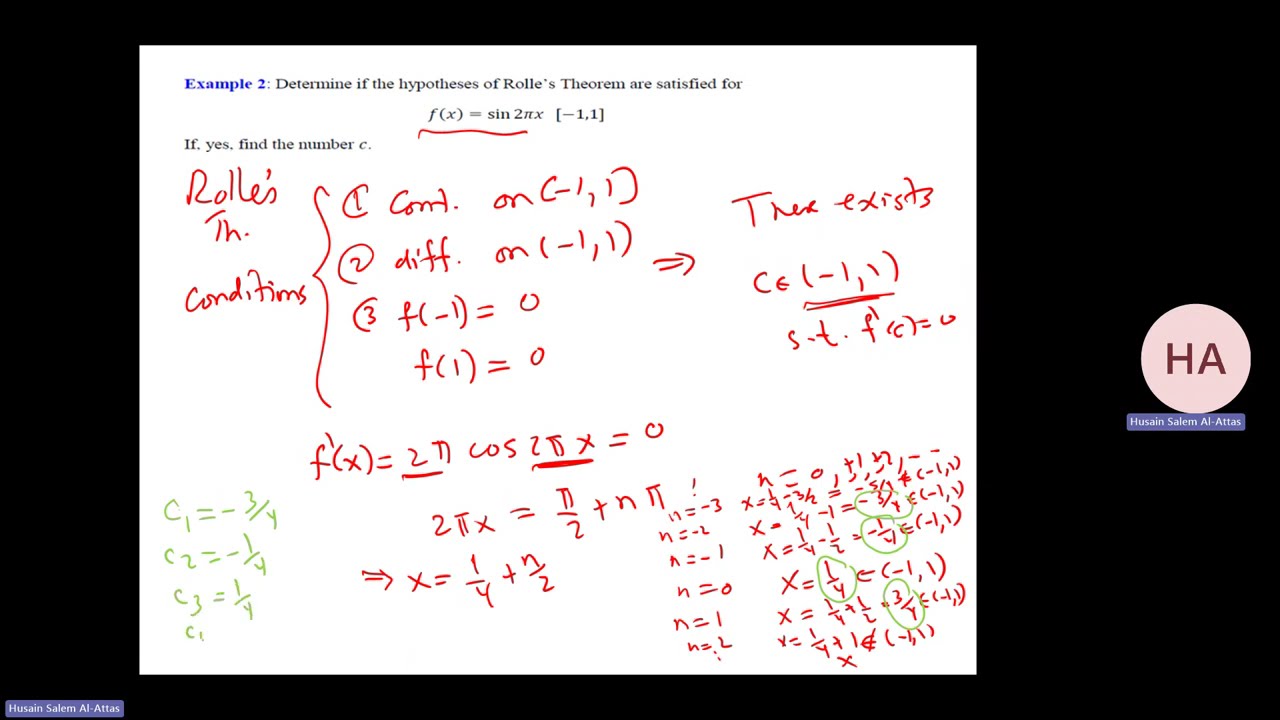 Example 2: Determine if the hypotheses of Rolle's Theorem are satisfied for
f(x) = sin 2πx [−1,1]
If, yes, find the number c.
Rolle's
Th.
Conditions
① Cont. on [-1, 1]
② diff. on (-1, 1)
③ f(-1) = 0
f(1) = 0
⇒
There exists
C∈ (-1, 1)
s.t. f'(c)=0
f'(x)= 2π cos 2πx = 0
2πx = π/2 + nπ
⇒ x = 1/4 + n/2
n = 0, ±1, ±2, --
n=-3 x=1/4-3/2 = -5/4 ∉(-1,1)
n=-2 x= 1/4 -1 = -3/4 ∈(-1,1)
n=-1 x= 1/4 - 1/2 = -1/4 ∈(-1,1)
n=0 x= 1/4 ∈ (-1,1)
n=1 x= 1/4 + 1/2 = 3/4 ∈ (-1,1)
n=2 x= 1/4 + 1 ∉ (-1,1)
x
C1 = -3/4
C2 = -1/4
C3 = 1/4
C
HA
Husain Salem Al-Attas
Husain Salem Al-Attas